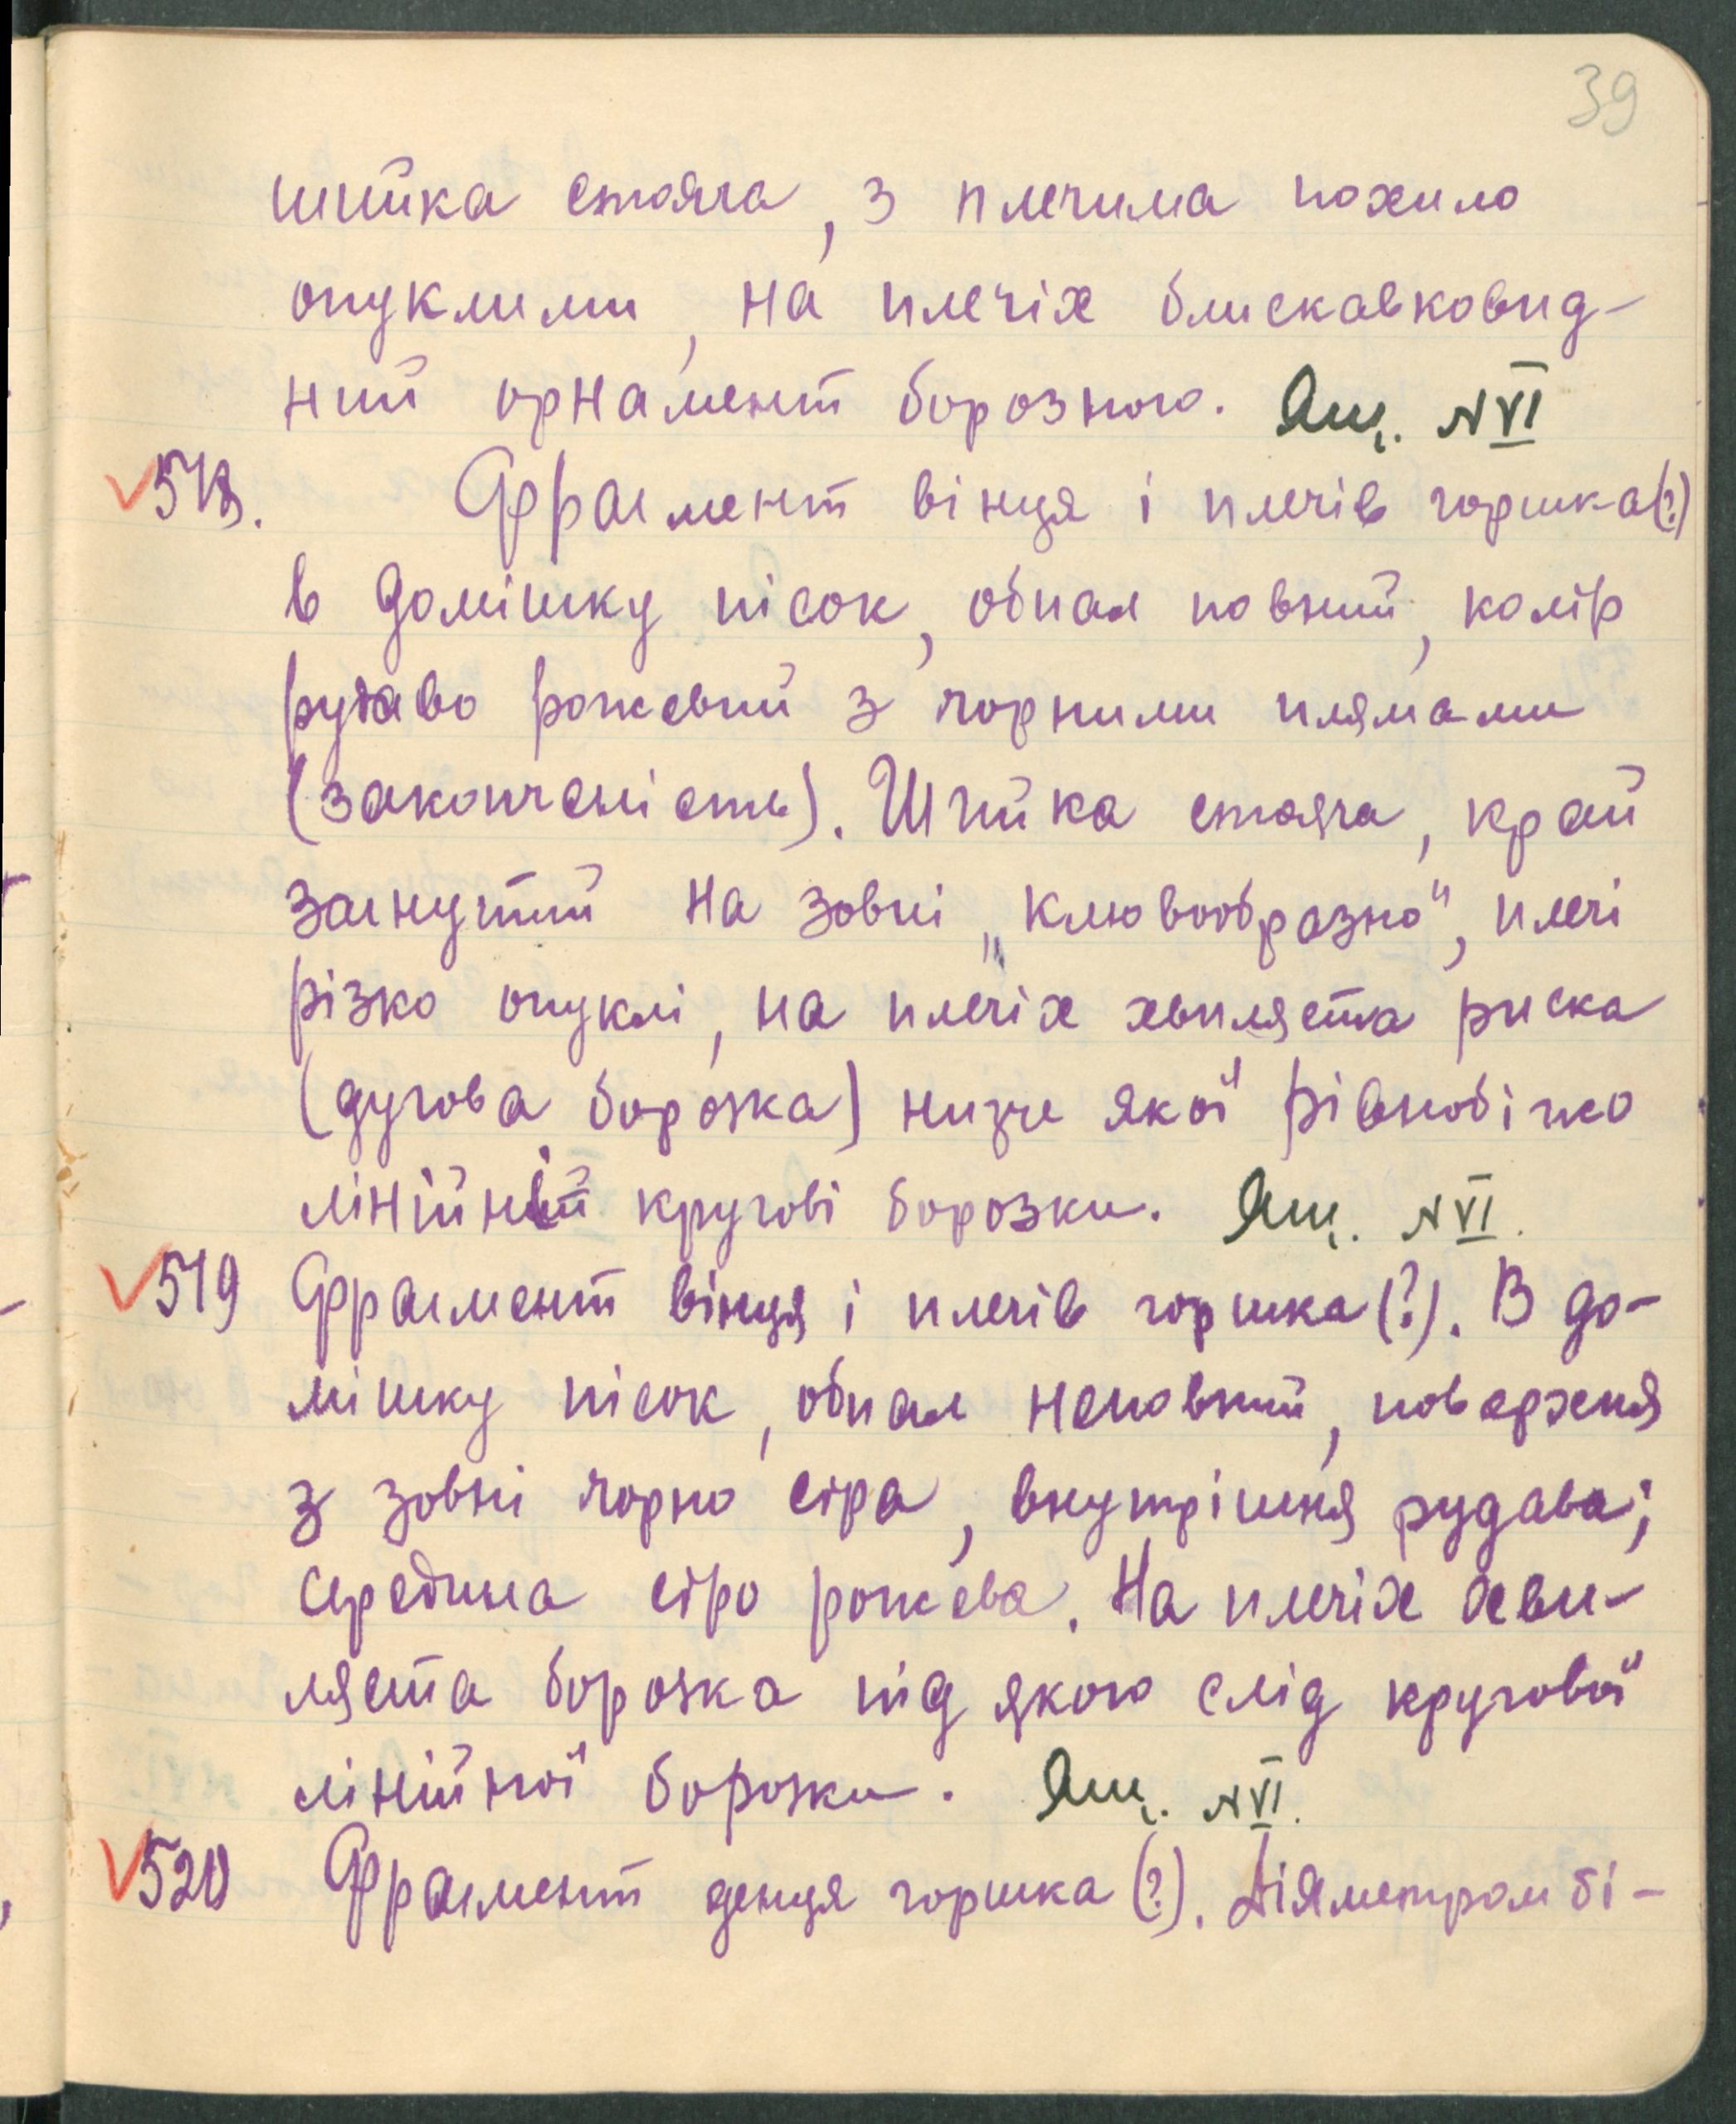 39
шийка стояча, з плечима похило
опуклими, на плечіх блискавковид-
ний орнамент борозною. Ящ. №VI
518. Фрагмент вінця і плечів горшка(?)
в домішку пісок, обпал повний, колір
рудаво рожевий з чорними плямами
(закопченість). Шийка стояча, край
загнутий на зовні „клювообразно", плечі
різко опуклі, на плечіх хвиляста риска
(дугова борозка) низче якої рівнобіжно
лінійні кругові борозки. Ящ. №VI.
519 Фрагмент вінця і плечів горшка(?). В до-
мішку пісок, обпал неповний, поверхня
з зовні чорно сіра, внутрішня рудава;
середина сіро рожева. На плечіх хви-
ляста борозка під якою слід кругової
лінійної борозки. Ящ. №VI.
520 Фрагмент денця горшка (?). Діяметром бі-